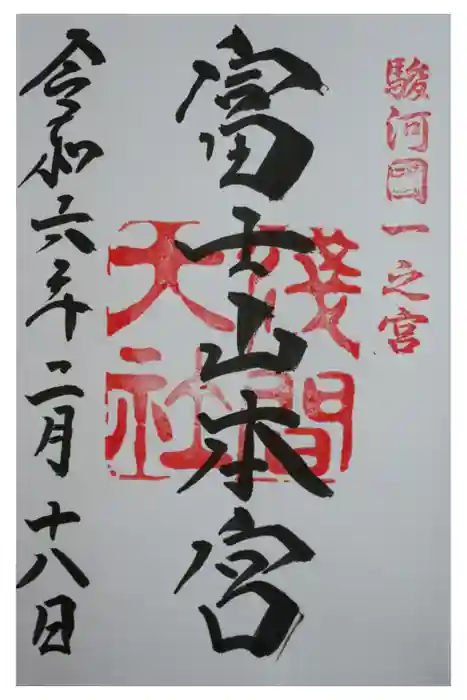 駿河國一之宮
富士山本宮
淺間
大社
令和六年二月十八日